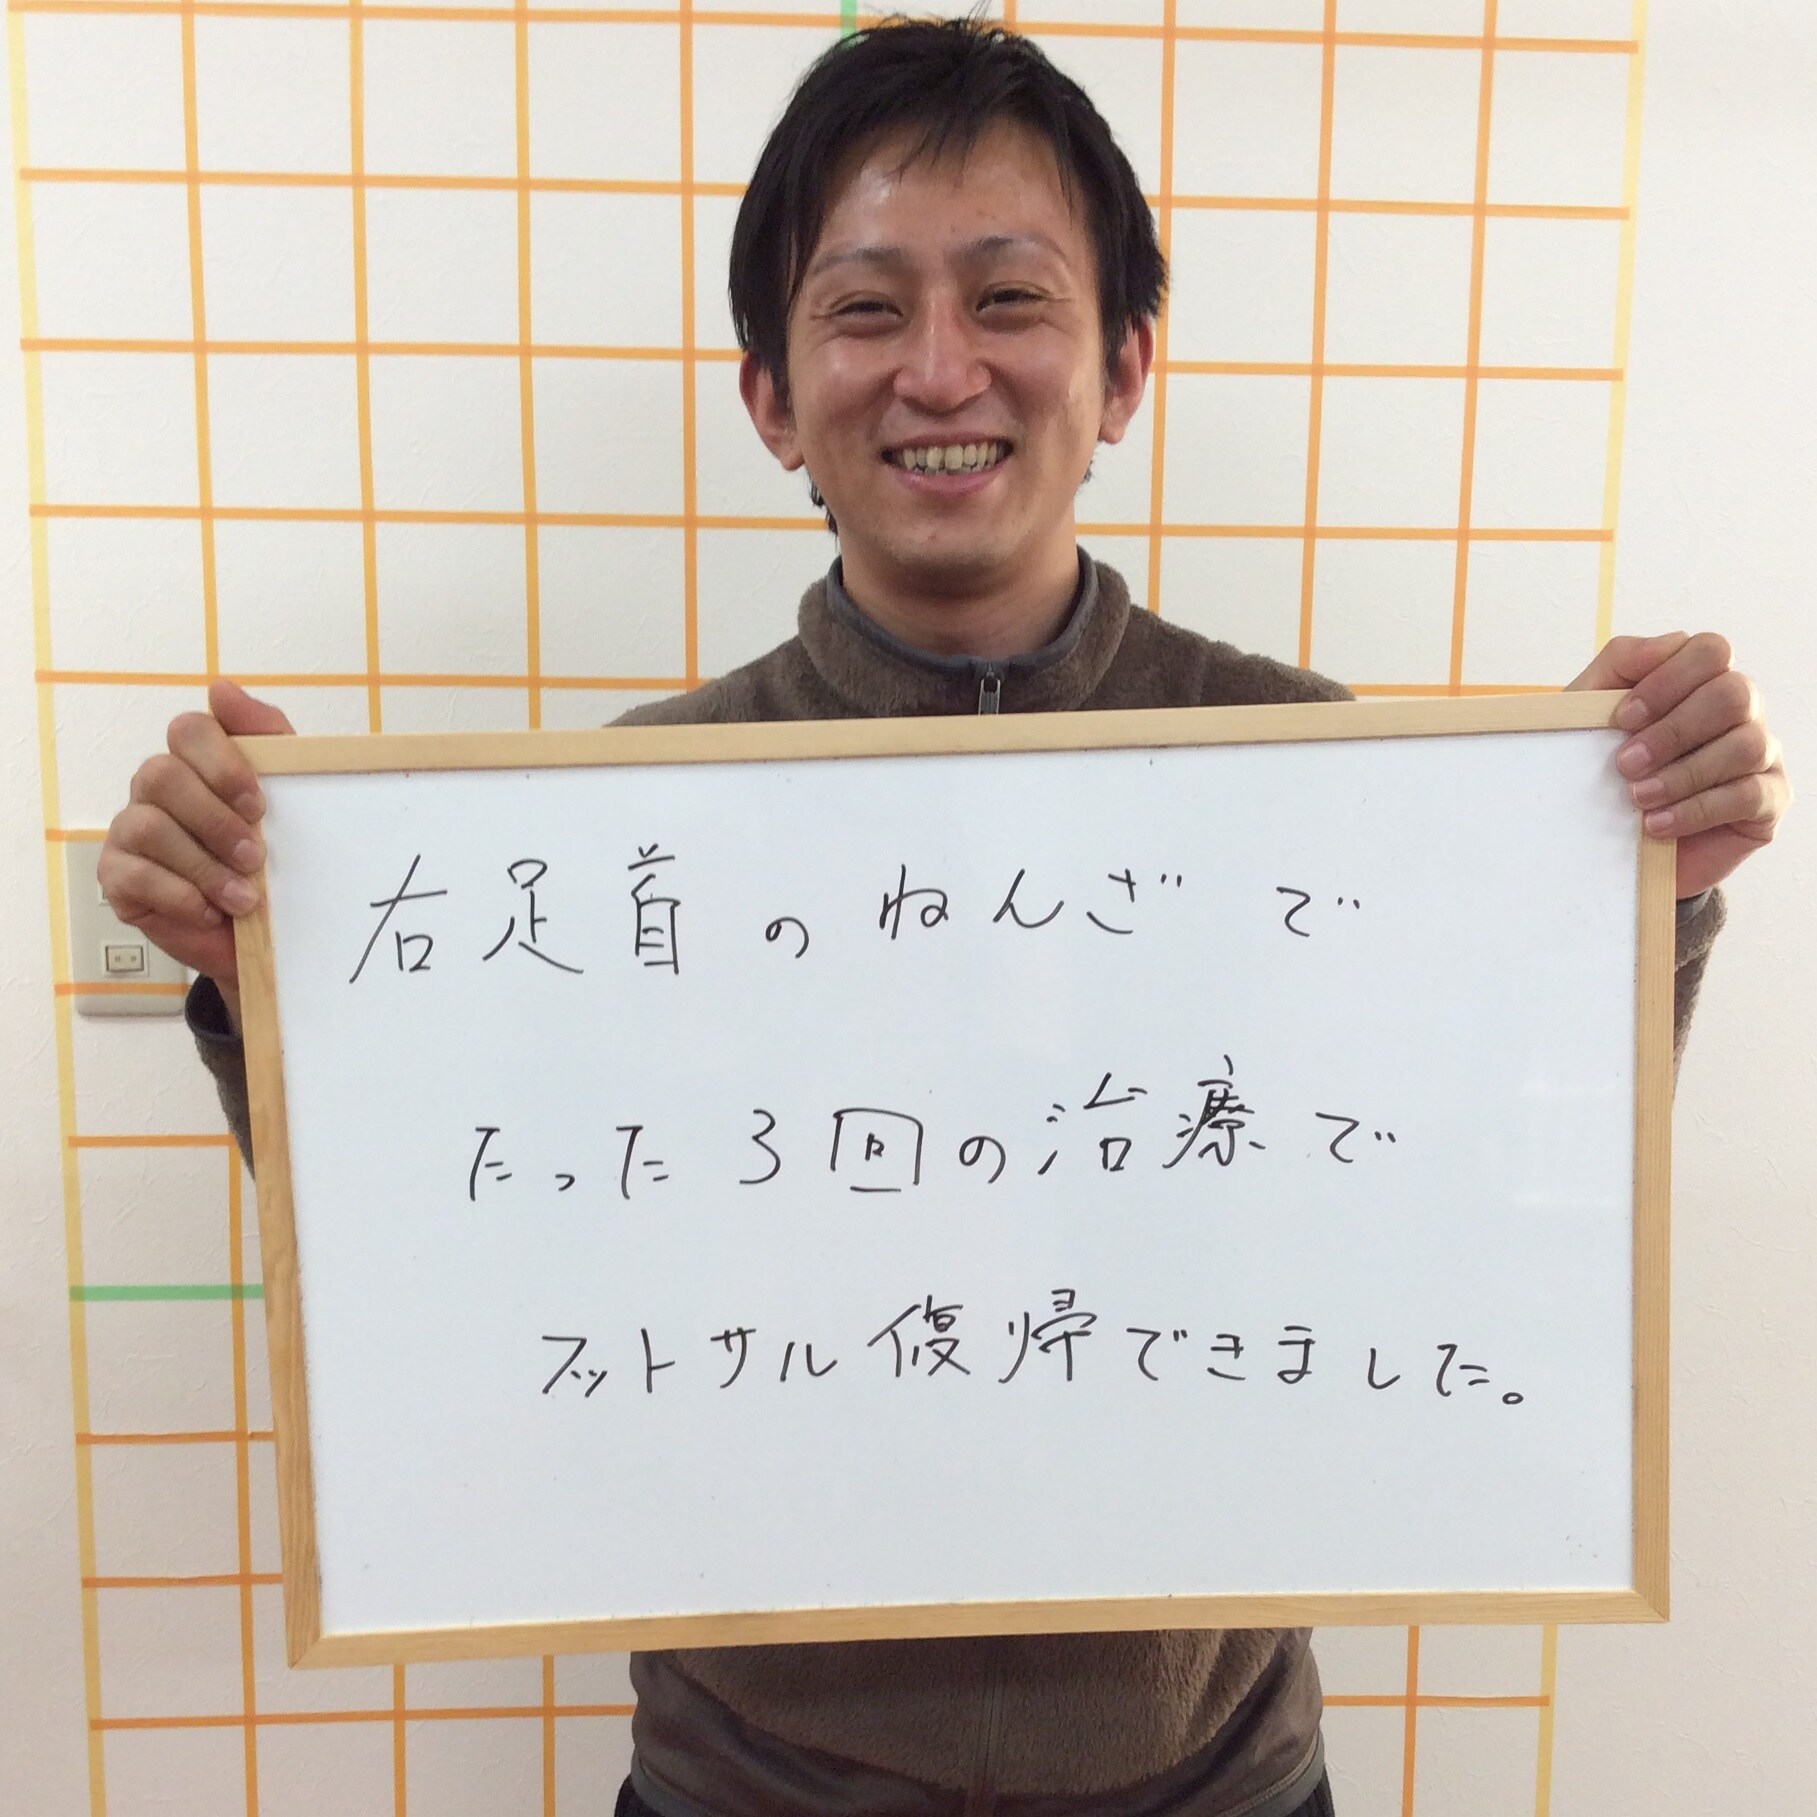 右足首のねんざで
たった3回の治療で
フットサル復帰できました。